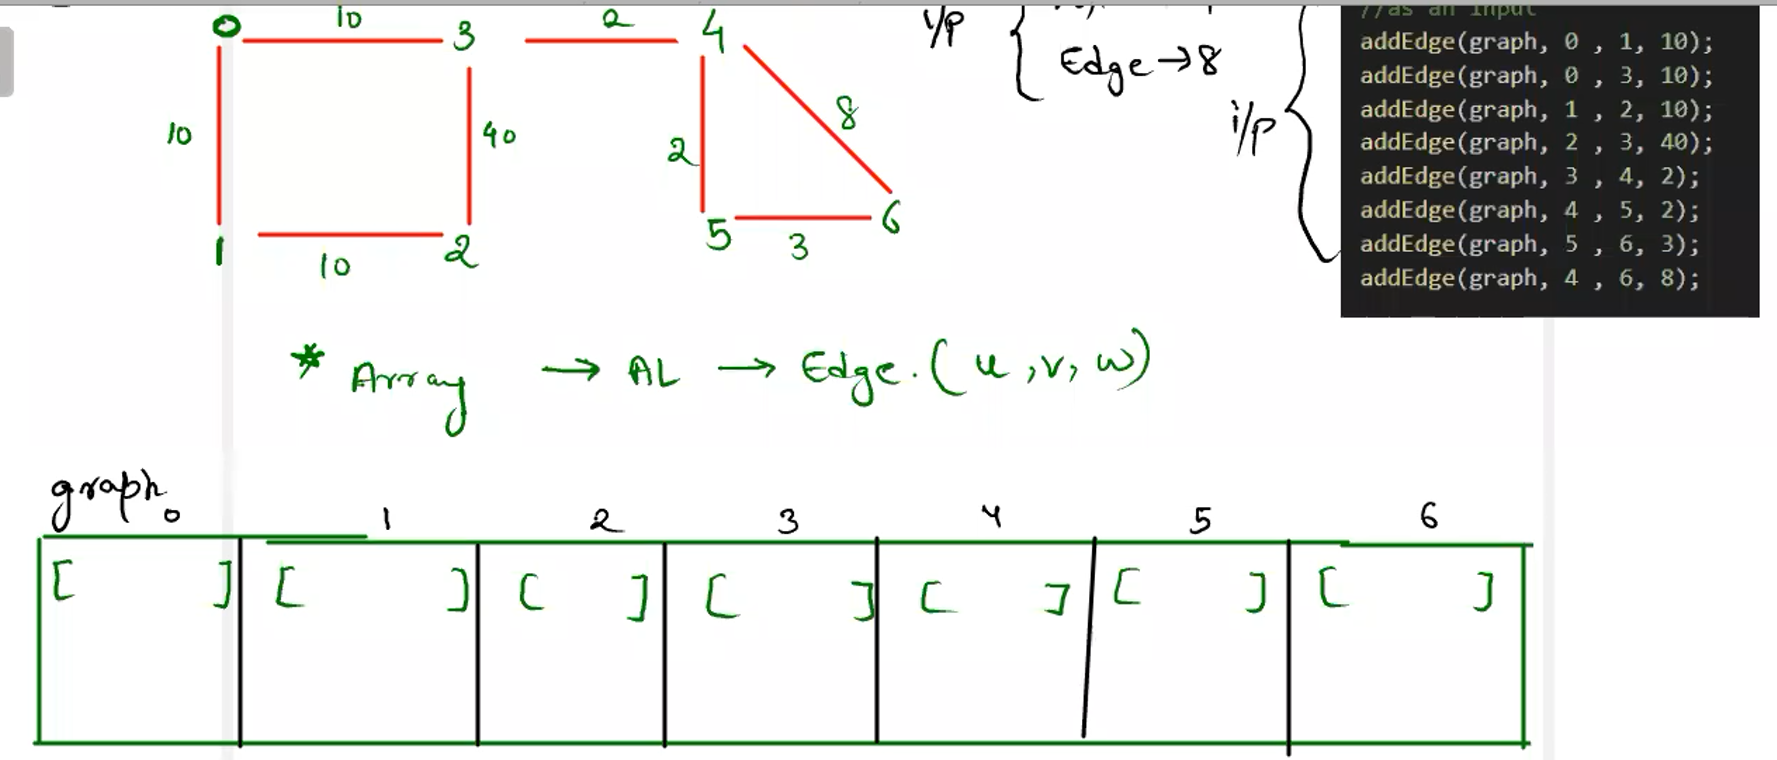 0 10 3 2 4
i/p
Edge → 8
10 40 2 8
i/p
1 10 2 5 3 6
//as an input
addEdge(graph, 0 , 1, 10);
addEdge(graph, 0 , 3, 10);
addEdge(graph, 1 , 2, 10);
addEdge(graph, 2 , 3, 40);
addEdge(graph, 3 , 4, 2);
addEdge(graph, 4 , 5, 2);
addEdge(graph, 5 , 6, 3);
addEdge(graph, 4 , 6, 8);
* Array → AL → Edge. (u, v, w)
graph
0 1 2 3 4 5 6
[ ] [ ] [ ] [ ] [ ] [ ] [ ]